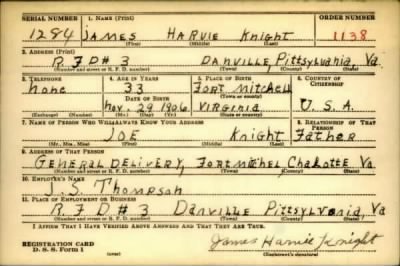 SERIAL NUMBER 1. NAME (Print) ORDER NUMBER
1284 JAMES HARVIE Knight 1138
(First) (Middle) (Last)
2. ADDRESS (Print)
R F D # 3 DANVILLE, Pittsylvania, Va
(Number and street or R. F. D. number) (Town) (County) (State)
3. TELEPHONE 4. AGE IN YEARS 5. PLACE OF BIRTH 6. COUNTRY OF CITIZENSHIP
none 33 Fort Mitchell
DATE OF BIRTH (Town or county)
Nov. 29 1906 VIRGINIA U. S. A.
(Exchange) (Number) (Mo.) (Day) (Yr.) (State or country)
7. NAME OF PERSON WHO WILL ALWAYS KNOW YOUR ADDRESS 8. RELATIONSHIP OF THAT PERSON
JOE Knight Father
(Mr., Mrs., Miss) (First) (Middle) (Last)
9. ADDRESS OF THAT PERSON
GENERAL DELIVERY, FORT Michel, Chalotte Va
(Number and street or R. F. D. number) (Town) (County) (State)
10. EMPLOYER'S NAME
J. S. Thompson
11. PLACE OF EMPLOYMENT OR BUSINESS
R F D # 3 Danville Pittsylvania, Va
(Number and street or R. F. D. number) (Town) (County) (State)
I AFFIRM THAT I HAVE VERIFIED ABOVE ANSWERS AND THAT THEY ARE TRUE.
REGISTRATION CARD James Harvie Knight
D. S. S. Form 1 (Registrant's signature)